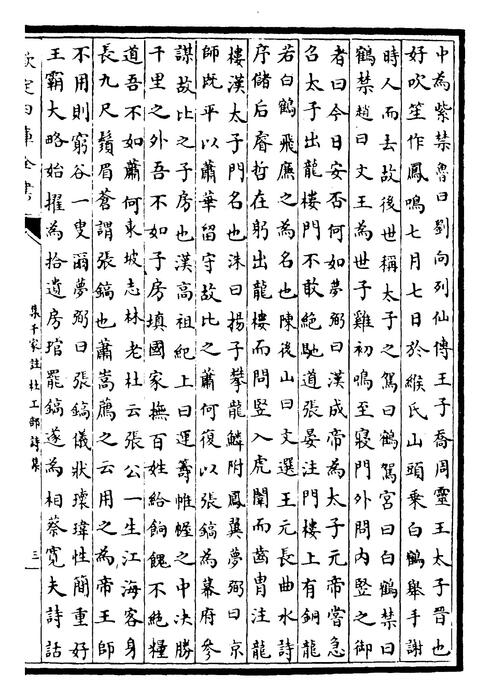 中為紫禁魯曰劉向列仙傳王子喬周靈王太子晉也
好吹笙作鳳鳴七月七日於緱氏山頭乘白鶴舉手謝
時人而去故後世稱太子之駕曰鶴駕宮曰白鶴禁曰
鶴禁趙曰文王為世子雞初鳴至寢門外問內豎之御
者曰今日安否何如夢弼曰漢成帝為太子元帝嘗急
召太子出龍樓門不敢絕馳道張晏注門樓上有銅龍
若白鶴飛廉之為名也陳後山曰文選王元長曲水詩
序儲后睿哲在躬出龍樓而問豎入虎闈而齒胄注龍
樓漢太子門名也洙曰揚子攀龍鱗附鳳翼夢弼曰京
師既平以蕭華留守故比之蕭何復以張鎬為幕府參
謀故比之子房也漢高祖紀上曰運籌帷幄之中決勝
千里之外吾不如子房填國家撫百姓給餉餽不絕糧
道吾不如蕭何東坡志林老杜云張公一生江海客身
長九尺鬚眉蒼謂張鎬也蕭嵩薦之云用之為帝王師
不用則窮谷一叟爾夢弼曰張鎬儀狀瓌瑋性簡重好
王霸大略始擢為拾遺房琯罷鎬遂為相蔡寬夫詩話
欽定四庫全書
集千家註杜工部詩集
三